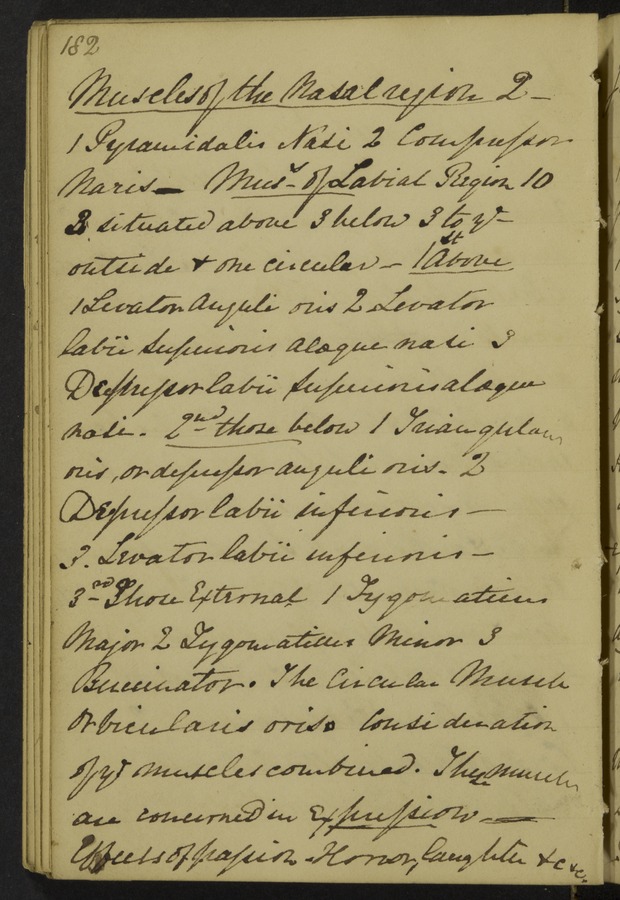 182
Muscles of the Nasal region 2 –
1 Pyramidalis Nasi 2 Compressor
Naris – Mus.s of Labial Region 10
3 situated above 3 below 3 to ye
outside & one circular – 1st Above
1 Levator Anguli oris 2 Levator
labii Superioris alaeque nasi 3
Depressor labii Superioris alaeque
nasi. 2nd those below 1 Triangularis
oris, or depressor anguli oris. 2
Depressor labii inferioris –
3. Levator labii inferioris –
3rd Those External 1 Zygomaticus
Major 2 Zygomaticus Minor 3
Buccinator. The Circular Muscle
Orbicularis oris. Consideration
of ye muscles combined. These muscles
are concerned in Expression –
Effects of passion – Horror, laughter &c &c.